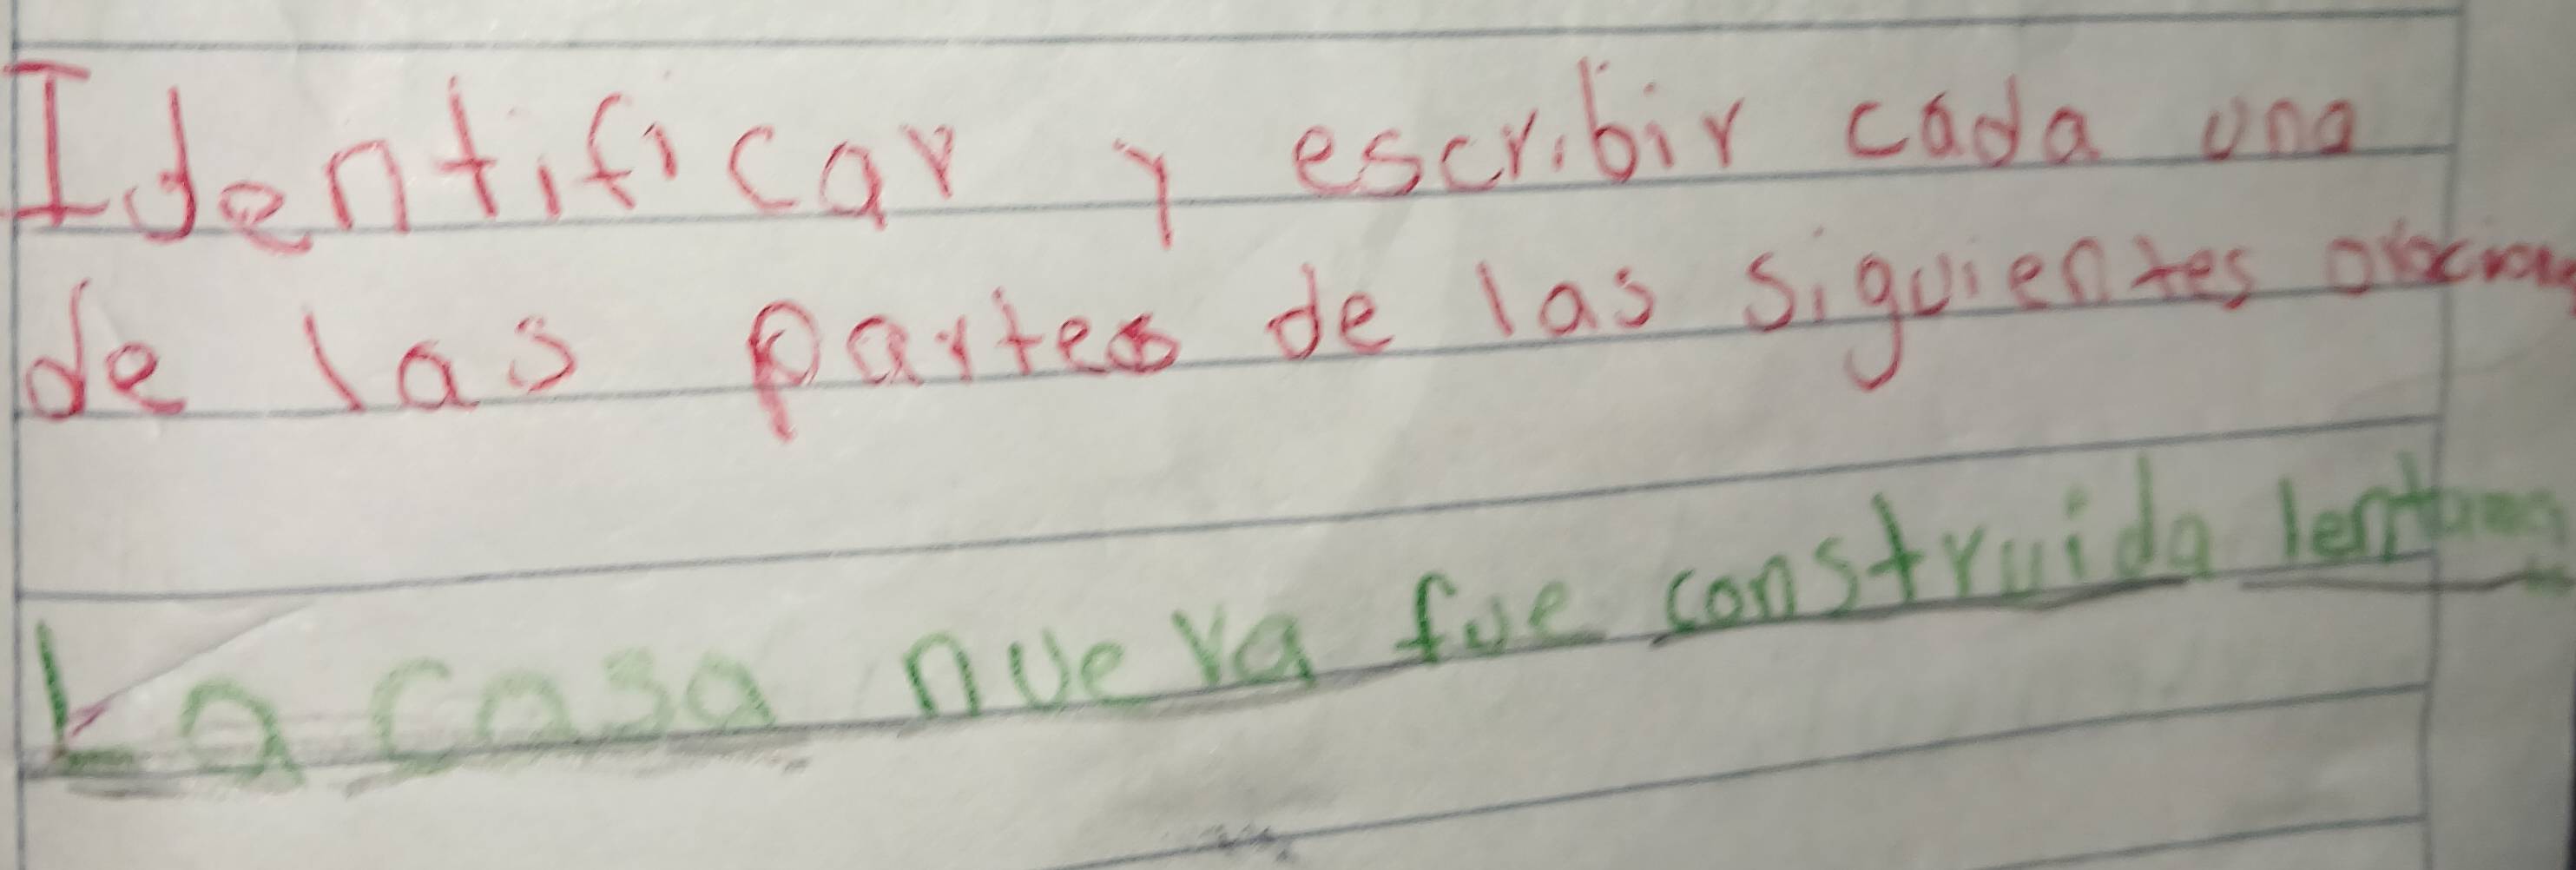 Identificar y escribir cada una
de las partes de las siguientes
La casa nueva fue construida